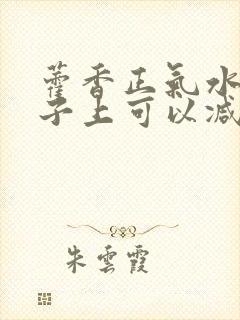 藿香正氣水
子上可以減
朱雲霞